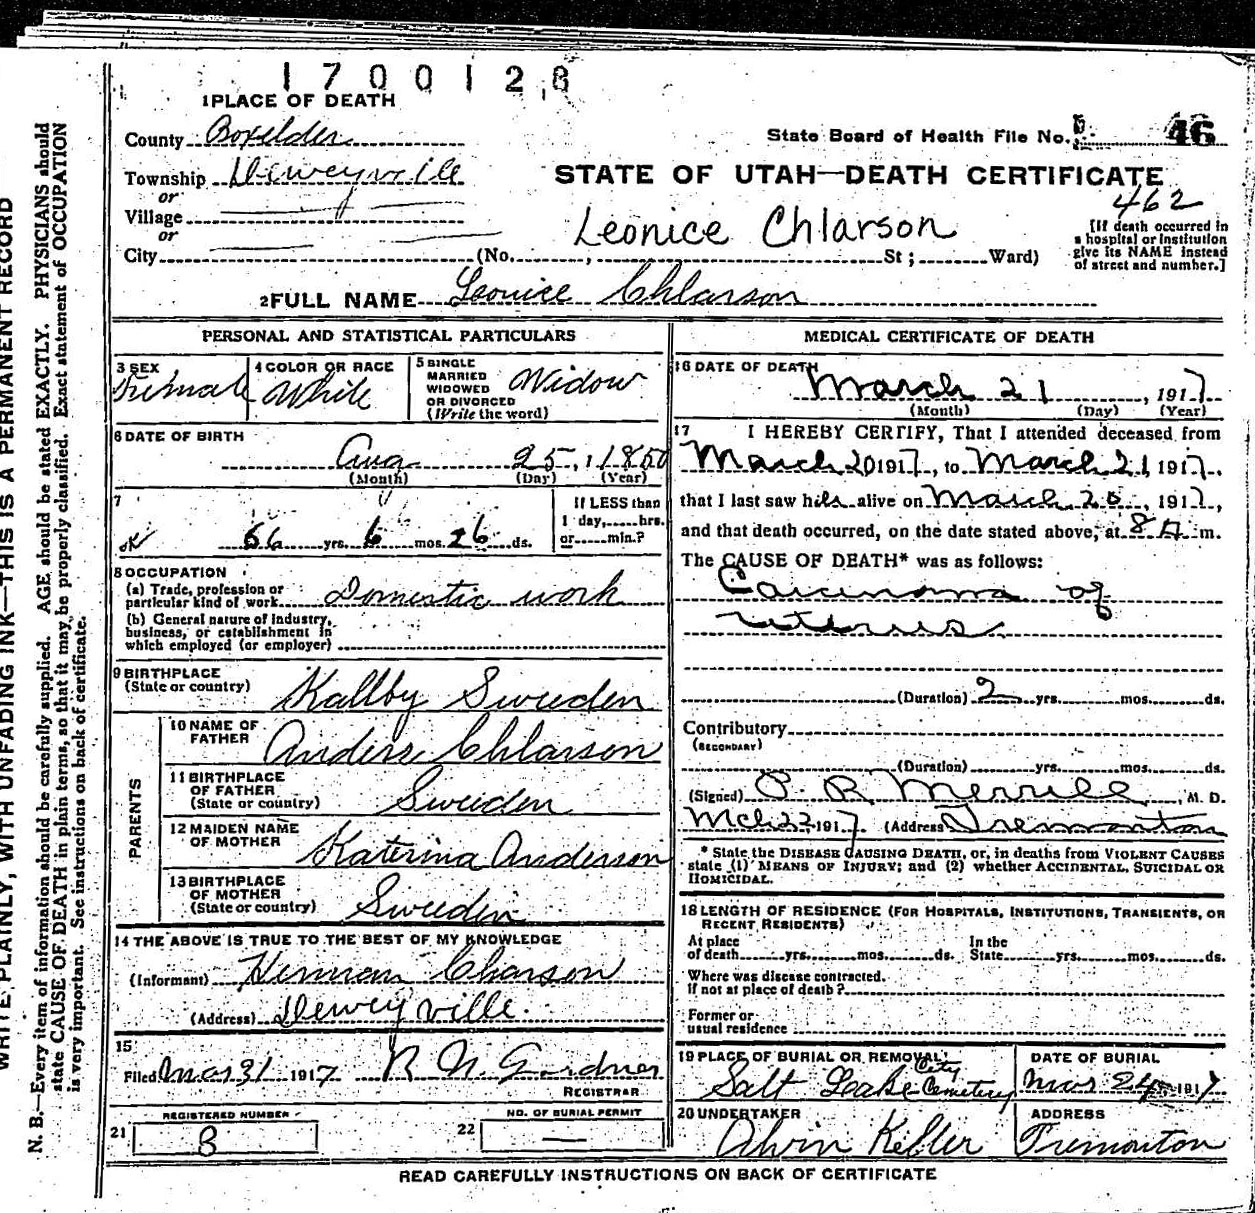 1700128
1 PLACE OF DEATH
County Boxelder
State Board of Health File No. 46
Township Deweyville
STATE OF UTAH—DEATH CERTIFICATE
462
or
Village
or
Leonice Chlarson
[If death occurred in
a hospital or institution
give its NAME instead
of street and number.]
City (No. ; St; Ward)
2 FULL NAME Leonice Chlarson
PERSONAL AND STATISTICAL PARTICULARS
3 SEX Female
4 COLOR OR RACE White
5 SINGLE
MARRIED
WIDOWED
OR DIVORCED
(Write the word) Widow
6 DATE OF BIRTH
Aug 25, 1850
(Month) (Day) (Year)
7
66 yrs. 6 mos. 26 ds.
If LESS than
1 day, hrs.
or min.?
8 OCCUPATION
(a) Trade, profession or
particular kind of work Domestic work
(b) General nature of industry,
business, or establishment in
which employed (or employer)
9 BIRTHPLACE
(State or country) Kallby Sweden
PARENTS
10 NAME OF
FATHER Anders Chlarson
11 BIRTHPLACE
OF FATHER
(State or country) Sweden
12 MAIDEN NAME
OF MOTHER Katerina Anderson
13 BIRTHPLACE
OF MOTHER
(State or country) Sweden
14 THE ABOVE IS TRUE TO THE BEST OF MY KNOWLEDGE
(Informant) Herman Charson
(Address) Deweyville.
15
Filed Mar 31 1917 R N Gardner
REGISTRAR
REGISTERED NUMBER
21 8
NO. OF BURIAL PERMIT
22 —
MEDICAL CERTIFICATE OF DEATH
16 DATE OF DEATH
March 21, 1917
(Month) (Day) (Year)
17 I HEREBY CERTIFY, That I attended deceased from
March 20 1917, to March 21, 1917,
that I last saw her alive on March 20, 1917,
and that death occurred, on the date stated above, at 8 A m.
The CAUSE OF DEATH* was as follows:
Carcinoma of
uterus
(Duration) 2 yrs. mos. ds.
Contributory
(SECONDARY)
(Duration) yrs. mos. ds.
(Signed) P. R. Merrill, M. D.
Mch 22, 1917 (Address) Tremonton
* State the DISEASE CAUSING DEATH, or, in deaths from VIOLENT CAUSES
state (1) MEANS OF INJURY; and (2) whether ACCIDENTAL, SUICIDAL OR
HOMICIDAL.
18 LENGTH OF RESIDENCE (FOR HOSPITALS, INSTITUTIONS, TRANSIENTS, OR
RECENT RESIDENTS)
At place
of death yrs. mos. ds.
In the
State yrs. mos. ds.
Where was disease contracted.
If not at place of death?
Former or
usual residence
19 PLACE OF BURIAL OR REMOVAL
Salt Lake City Cemetery
DATE OF BURIAL
Mar 24 1917
20 UNDERTAKER
Alvin Keller
ADDRESS
Tremonton
READ CAREFULLY INSTRUCTIONS ON BACK OF CERTIFICATE
WRITE PLAINLY, WITH UNFADING INK—THIS IS A PERMANENT RECORD
N. B.—Every item of information should be carefully supplied. AGE should be stated EXACTLY. PHYSICIANS should
state CAUSE OF DEATH in plain terms, so that it may be properly classified. Exact statement of OCCUPATION
is very important. See instructions on back of certificate.